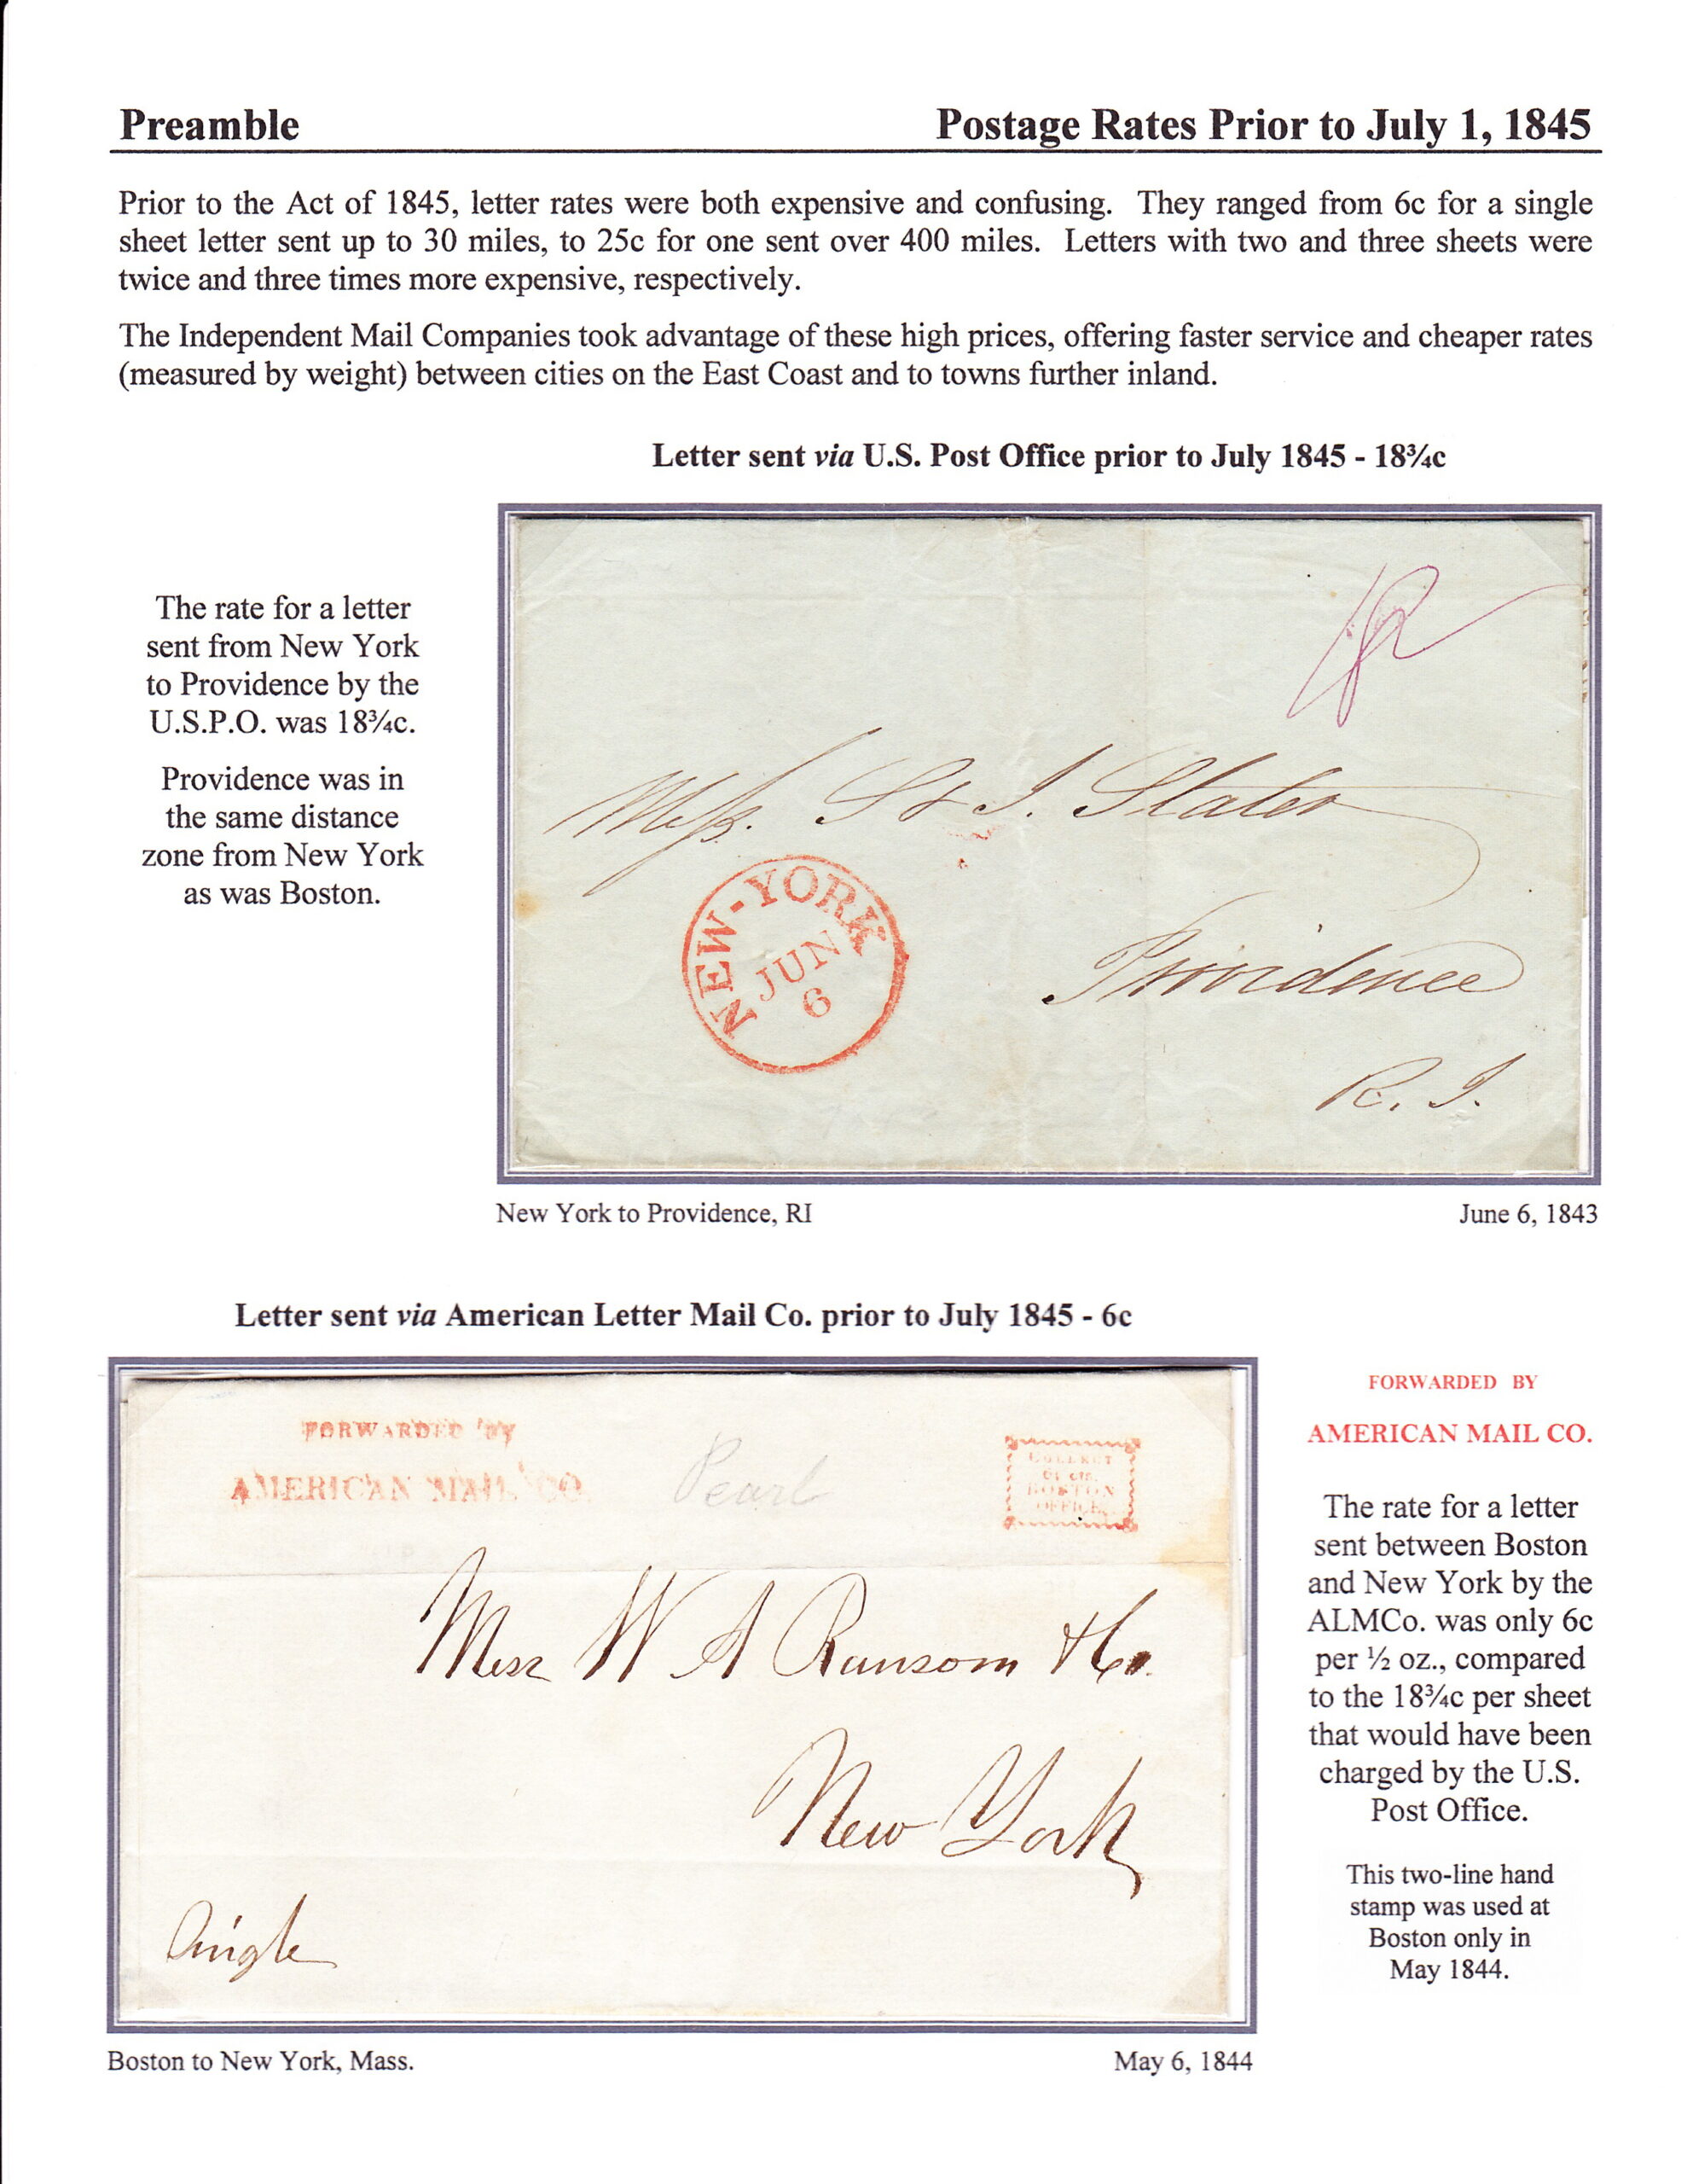 Preamble
Postage Rates Prior to July 1, 1845
Prior to the Act of 1845, letter rates were both expensive and confusing. They ranged from 6c for a single
sheet letter sent up to 30 miles, to 25c for one sent over 400 miles. Letters with two and three sheets were
twice and three times more expensive, respectively.
The Independent Mail Companies took advantage of these high prices, offering faster service and cheaper rates
(measured by weight) between cities on the East Coast and to towns further inland.
Letter sent via U.S. Post Office prior to July 1845 - 18¾c
The rate for a letter
sent from New York
to Providence by the
U.S.P.O. was 18¾c.
Providence was in
the same distance
zone from New York
as was Boston.
Messs. S & J. Slater
Providence
R. I.
NEW-YORK
JUN
6
New York to Providence, RI
June 6, 1843
Letter sent via American Letter Mail Co. prior to July 1845 - 6c
FORWARDED BY
AMERICAN MAIL CO.
Pearl
COLLECT
6¼ cts.
BOSTON
OFFICE
Mess W A Ransom & Co.
New York
Single
Boston to New York, Mass.
May 6, 1844
FORWARDED BY
AMERICAN MAIL CO.
The rate for a letter
sent between Boston
and New York by the
ALMCo. was only 6c
per ½ oz., compared
to the 18¾c per sheet
that would have been
charged by the U.S.
Post Office.
This two-line hand
stamp was used at
Boston only in
May 1844.